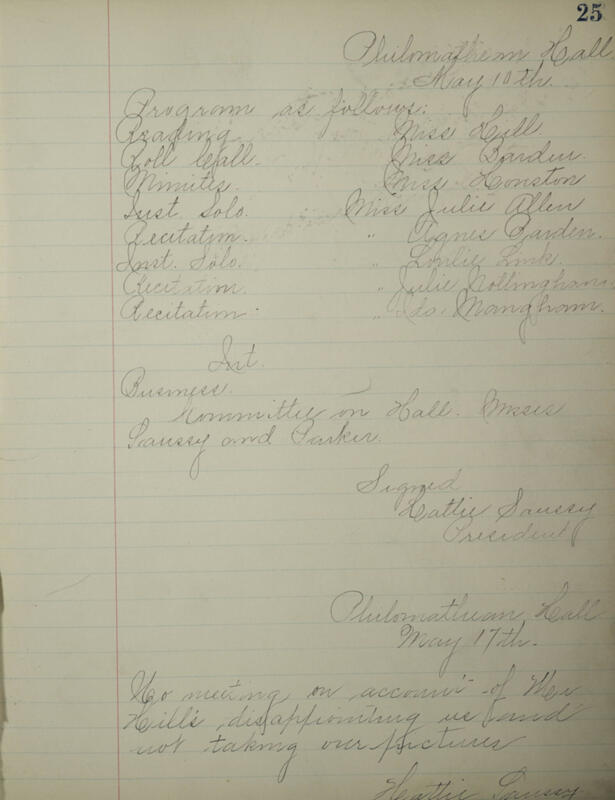 25
Philomathean Hall
May 10th.
Program as follows:
Reading. Miss Hill
Roll Call. Miss Barden.
Minutes. Miss Houston
Inst Solo. Miss Julie Allen
Recitation. " Agnes Barden.
Inst. Solo. " Link.
Recitation. " Julie
Recitation. " Ida Mangham.
Int.
Business.
Committee on Hall. Misses
Saussy and Parker.
Signed
Hattie Saussy
President
Philomathean Hall
May 17th.
No meeting on account of
Hill's disappointing us and
not taking our pictures
Hattie Saussy